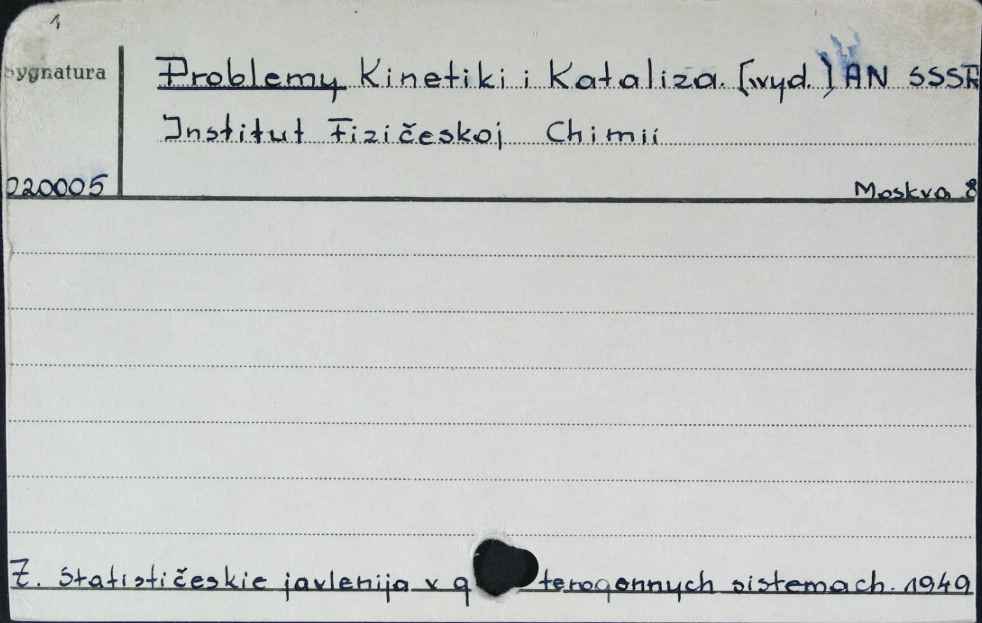 1
Sygnatura
Problemy Kinetiki i Kataliza. [wyd.] AN SSSR
Institut Fizičeskoj Chimii
020005
Moskva 8
7. Statističeskie javlenija v g terogennych sistemach. 1949